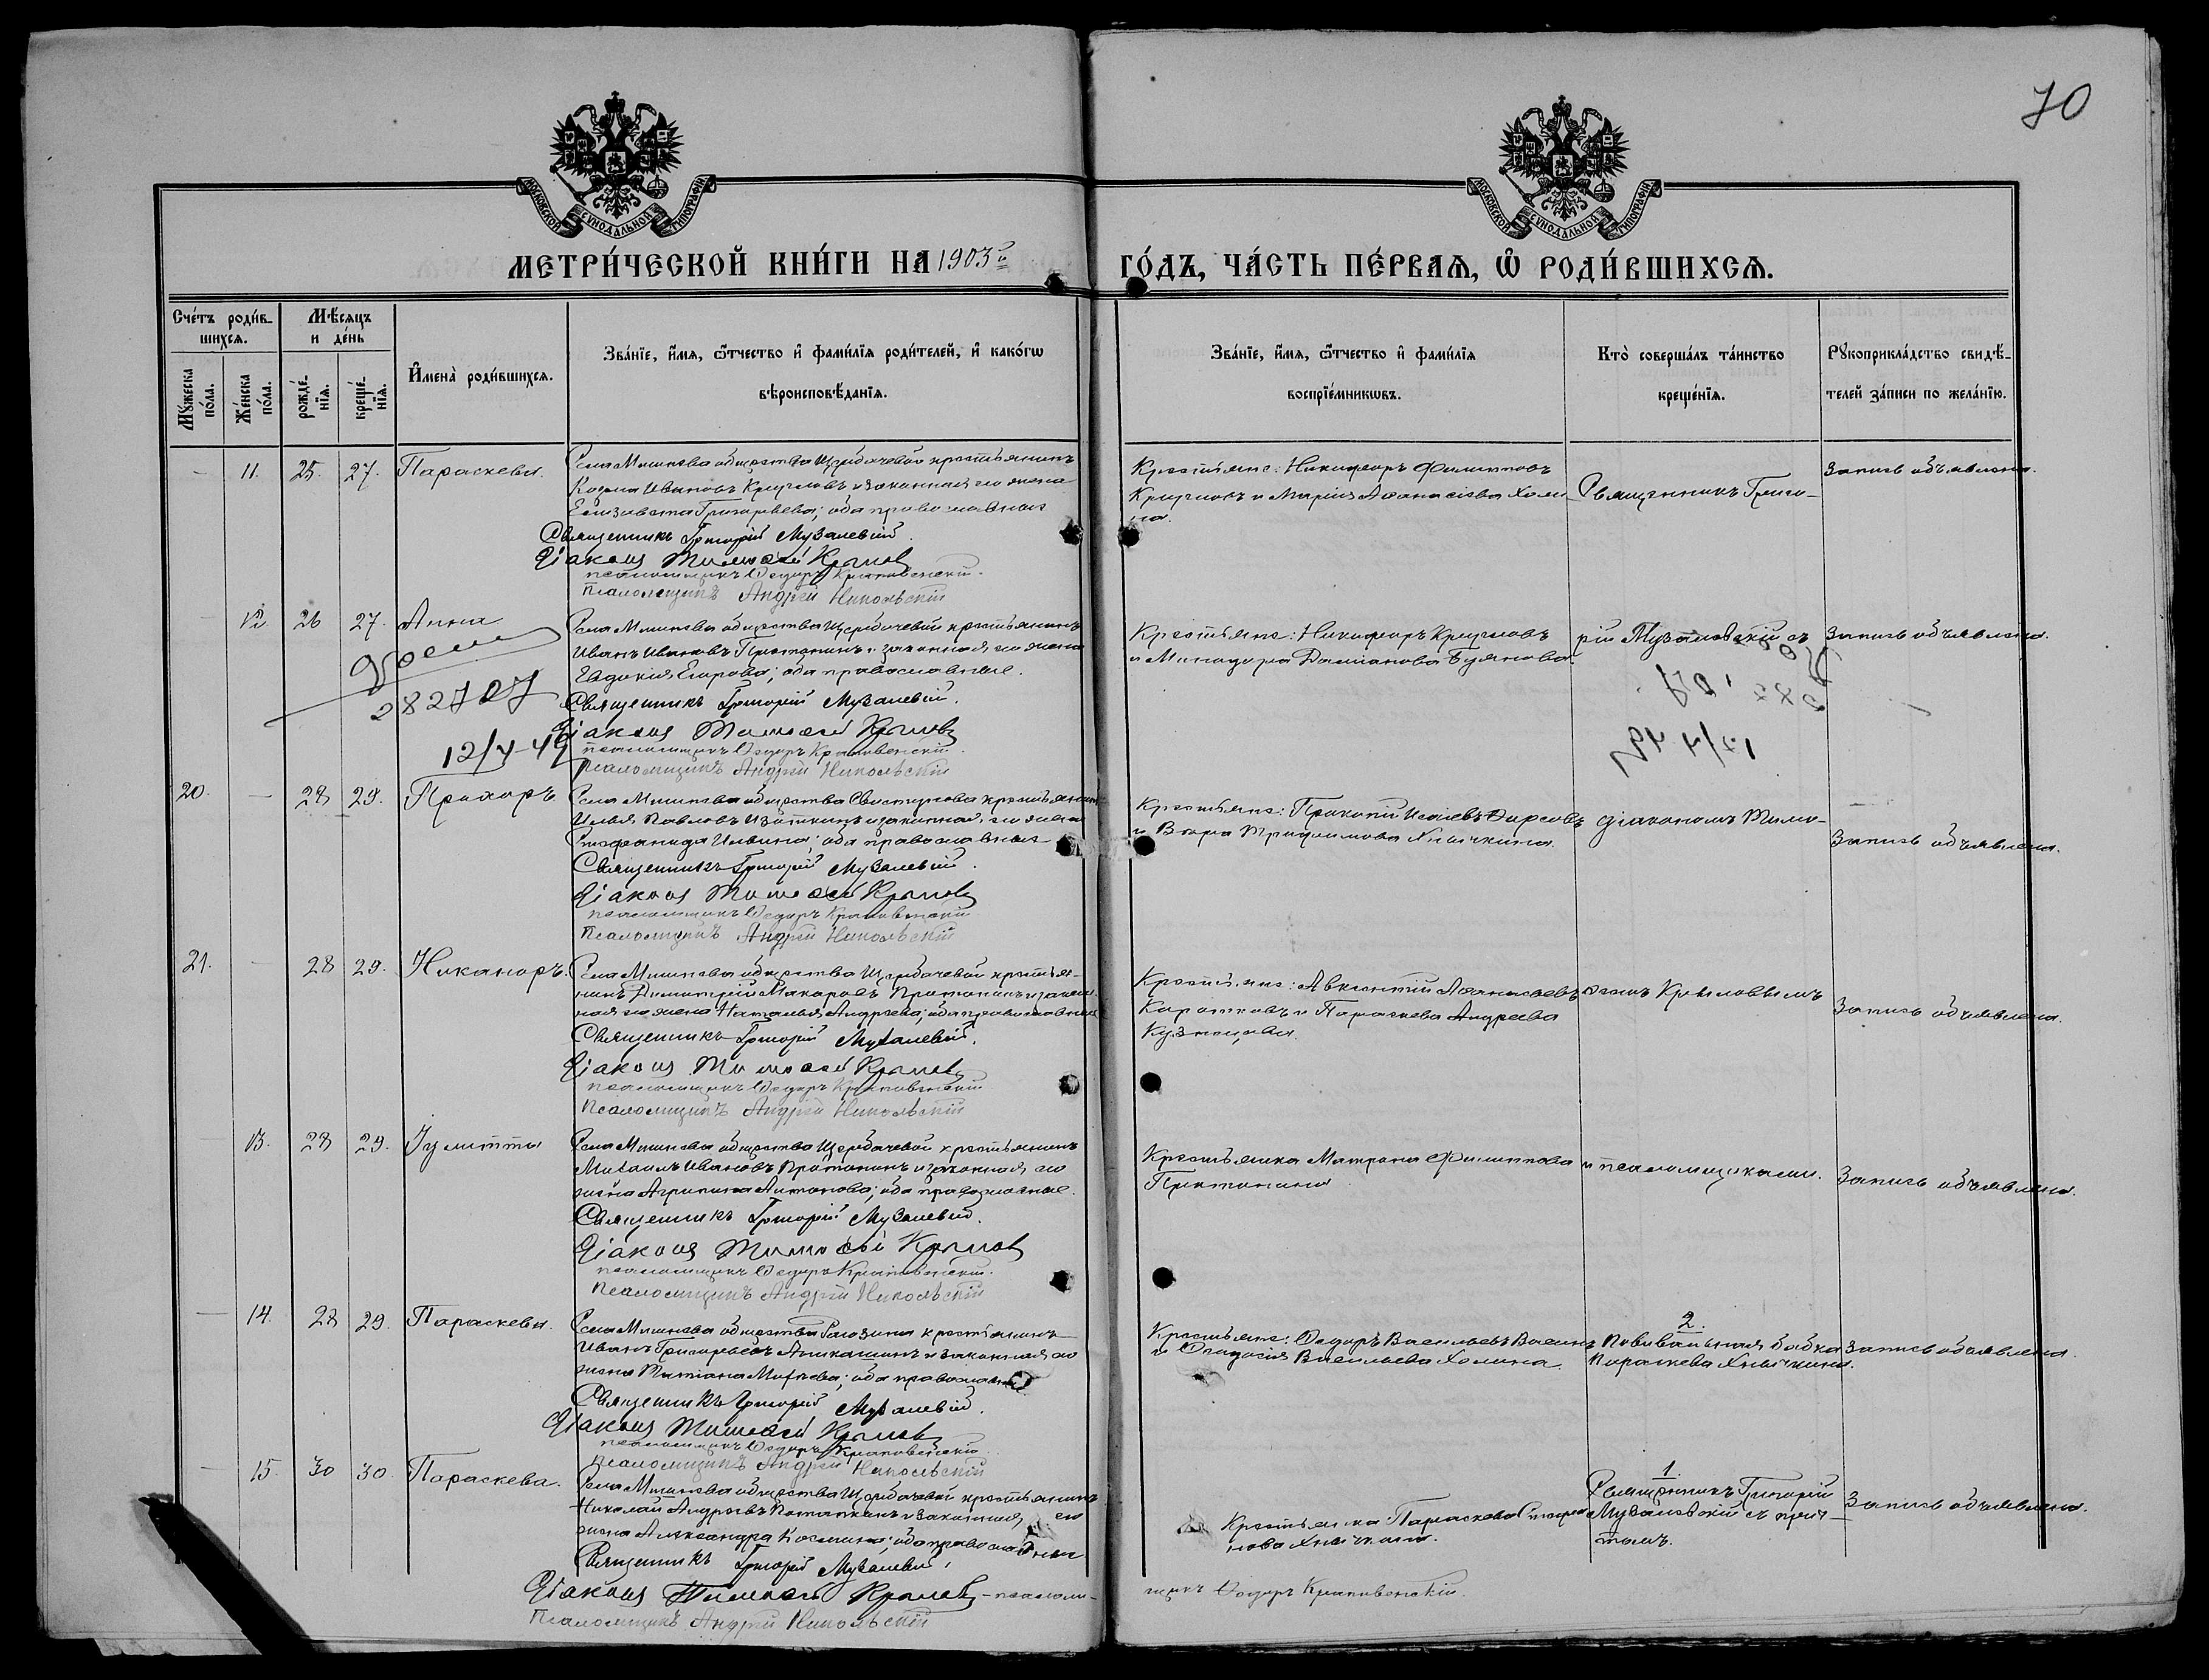 70
МОСКОВСКОЙ СѴНОДАЛЬНОЙ ТИПОГРАФІИ
МОСКОВСКОЙ СѴНОДАЛЬНОЙ ТИПОГРАФІИ
МЕТРИ́ЧЕСКОЙ КНИ́ГИ НА 1903й ГО́ДЪ, ЧА́СТЬ ПЕ́РВАѦ, Ѡ҆ РОДИ́ВШИХСѦ.
Сче́тъ роди́в-
шихсѧ.
Мꙋ́жеска по́ла.
Же́нска по́ла.
Мѣ́сѧцъ
и де́нь
рожде́-
нїѧ.
креще́-
нїѧ.
И҆мена̀ роди́вшихсѧ.
Зва́нїе, и҆́мѧ, ѻ҆́тчество и҆ фами́лїѧ роди́телей, и҆ како́гѡ
вѣроисповѣ́данїѧ.
Зва́нїе, и҆́мѧ, ѻ҆́тчество и҆ фами́лїѧ
воспрїе́мникѡвъ.
Кто̀ соверша́лъ та́инство
креще́нїѧ.
Рꙋкоприкла́дство свидѣ́-
телей за́писи по жела́нїю.
— 11. 25. 27. Параскева.
Села Мишнева общества Щербачевой крестьянинъ
Косма Ивановъ Кругловъ и законная его жена
Елизавета Григорьева; оба православные
Священникъ Григорій Музалевскій.
Діаконъ Тимоѳей Крыловъ
псаломщикъ Ѳедоръ
Псаломщикъ Андрей Никольскій
Крестьяне: Никифоръ Филипповъ
Кругловъ и Марія Аѳанасіева Холи-
на.
Священникъ Григо-
Запись объявлена.
12. 26 27. Анна
282707
12/4-49
Села Мишнева общества Щербачевой крестьянинъ
Иванъ Ивановъ Протонинъ и законная его жена
Евдокія Егорова; оба православные.
Священникъ Григорій Музалевскій.
Діаконъ Тимоѳей Крыловъ
псаломщикъ Ѳедоръ
Псаломщикъ Андрей Никольскій
Крестьяне: Никифоръ Кругловъ
и Минодора Даміанова Буянова
рій Музалевскій съ
Запись объявлена.
20. — 28 29. Прохоръ
Села Мишнева общества Свистунова крестьянинъ
Илья Павловъ и законная его жена
Стефанида Ильина; оба православные
Священникъ Григорій Музалевскій.
Діаконъ Тимоѳей Крыловъ
псаломщикъ Ѳедоръ
Псаломщикъ Андрей Никольскій
Крестьяне: Прокопій Исаіевъ
и Вѣра Трифилмова Хнычкина.
діакономъ Тимо-
Запись объявлена.
21. — 28 29. Никаноръ.
Села Мишнева общества Щербачевой крестья-
нинъ Димитрій Макаровъ Протонинъ и закон-
ная его жена Наталья Андреева; оба православные
Священникъ Григорій Музалевскій.
Діаконъ Тимоѳей Крыловъ
псаломщикъ Ѳедоръ
Псаломщикъ Андрей Никольскій
Крестьяне: Авксентій Аѳанасьевъ
Коротковъ и Параскева Андреева
Кузнецова.
ѳеемъ Крыловымъ
Запись объявлена.
13. 28 29. Іулитта
Села Мишнева общества Щербачевой крестьянинъ
Михаилъ Ивановъ Протонинъ и законная его
жена Агрипина Антонова; оба православные.
Священникъ Григорій Музалевскій.
Діаконъ Тимоѳей Крыловъ
псаломщикъ Ѳедоръ
Псаломщикъ Андрей Никольскій
Крестьянка Матрона Филиппова
Протонина
и псаломщиками.
Запись объявлена.
— 14. 28 29. Параскева.
Села Мишнева общества крестьянинъ
Иванъ Григорьевъ Аникашинъ и законная его
жена Татіана; оба православные
Священникъ Григорій Музалевскій.
Діаконъ Тимоѳей Крыловъ
псаломщикъ Ѳедоръ
Псаломщикъ Андрей Никольскій
Крестьяне: Ѳедоръ Васильевъ
и Ѳеодосія Васильева Холина
2.
Повивальная бабка
Параскева Хнычкина.
Запись объявлена.
— 15. 30 30. Параскева.
Села Мишнева общества Щербачевой крестьянинъ
Николай Андреевъ Потапкинъ и законная его
жена Александра Космина; оба православные
Священникъ Григорій Музалевскій.
Діаконъ Тимоѳей Крыловъ - псалом-
щикъ Ѳедоръ
Псаломщикъ Андрей Никольскій
Крестьянка Параскева
нова Хнычкина.
1.
Священникъ Григорій
Музалевскій съ прич-
томъ.
Запись объявлена.